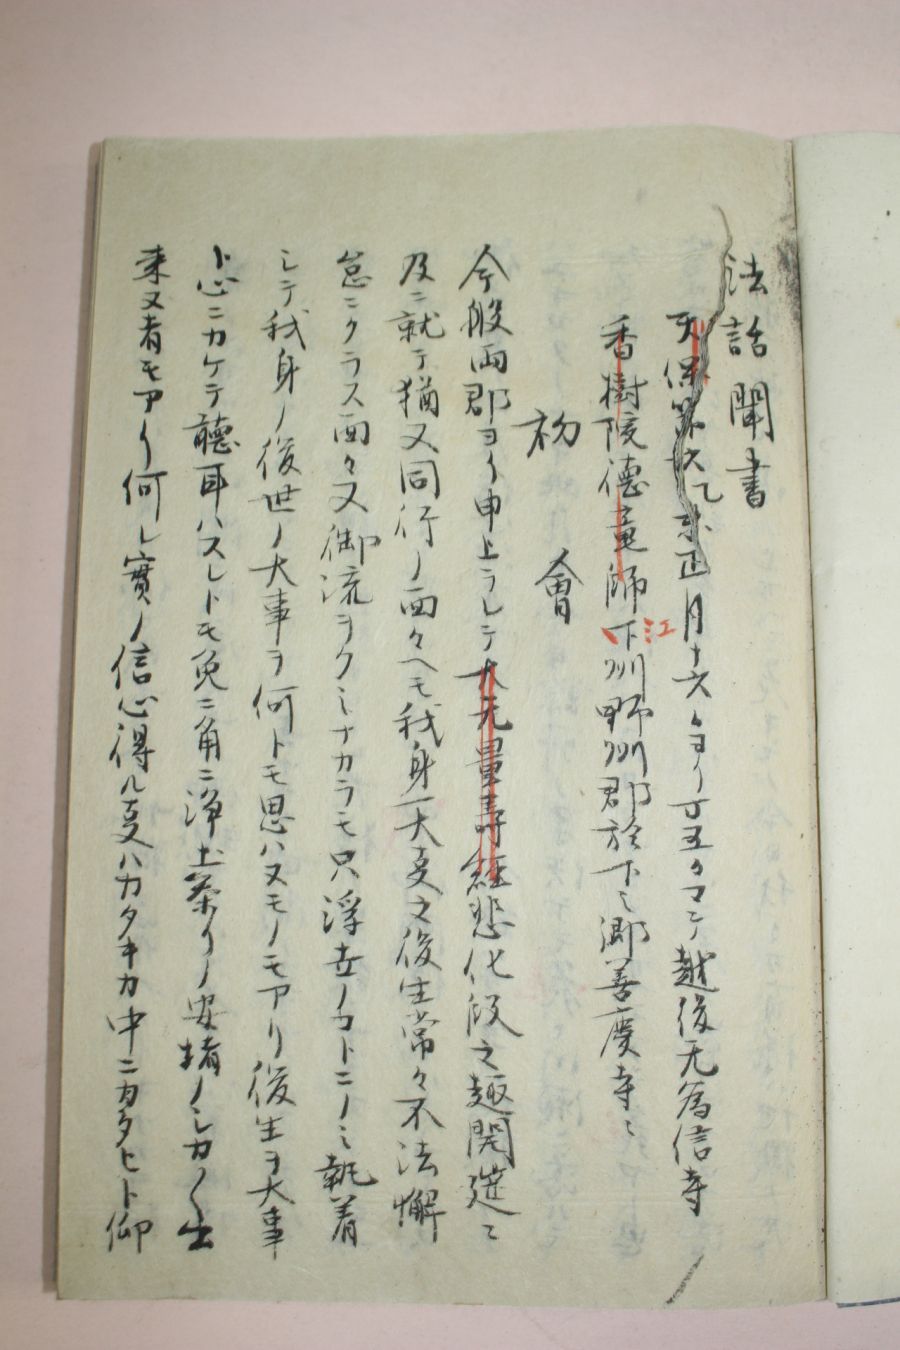 法話聞書
天保第六乙未正月十六日ヨリ廿五日マテ越後无為信寺
香樹院德竜師江州野州郡於下之郷善慶寺ニ
初會
今般両郡ヨリ申上ラレテ大无量寿経悲化段之趣開莚ニ
及ニ就テ猶又同行ノ面々ヘモ我身一大事之後生常々不法懈
怠ニクラス面々又御流ヲクミナカラモ只浮世ノコトニノミ執着
シテ我身ノ後世ノ大事ヲ何トモ思ハヌモノモアリ後生ヲ大事
ト心ニカケテ聴耳ハスレトモ兎ニ角ニ浄土参リノ安堵ノシカ〳〵出
来又者モアリ何レ實ノ信心得ル事ハカタキカ中ニカタヒト仰